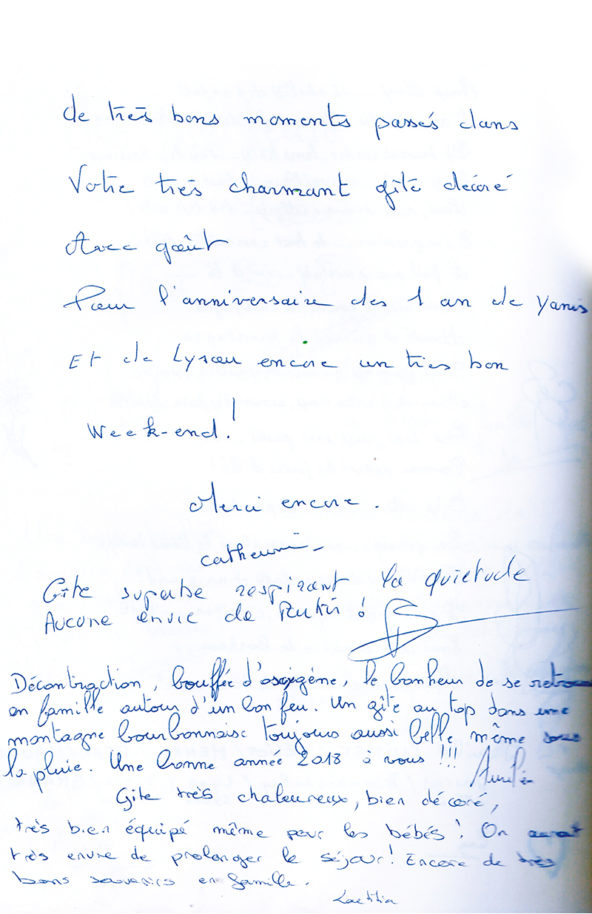 de très bons moments passés dans
Votre très charmant gîte décoré
Avec goût
Pour l'anniversaire des 1 an de Yanis
Et de encore un très bon
Week-end!
Merci encore.
Catherine
Gite superbe respirant la quietude
Aucune envie de Partir !
Décontraction, bouffée d'oxygène, le bonheur de se retrouver
en famille autour d'un bon feu. Un gîte au top dans une
montagne bourbonnaise toujours aussi belle même sous
la pluie. Une bonne année 2018 à vous !!! Aurélie
Gite très chaleureux, bien décoré,
très bien équipé même pour les bébés ! On aurait
très envie de prolonger le séjour ! Encore de très
bons souvenirs en famille.
Laetitia